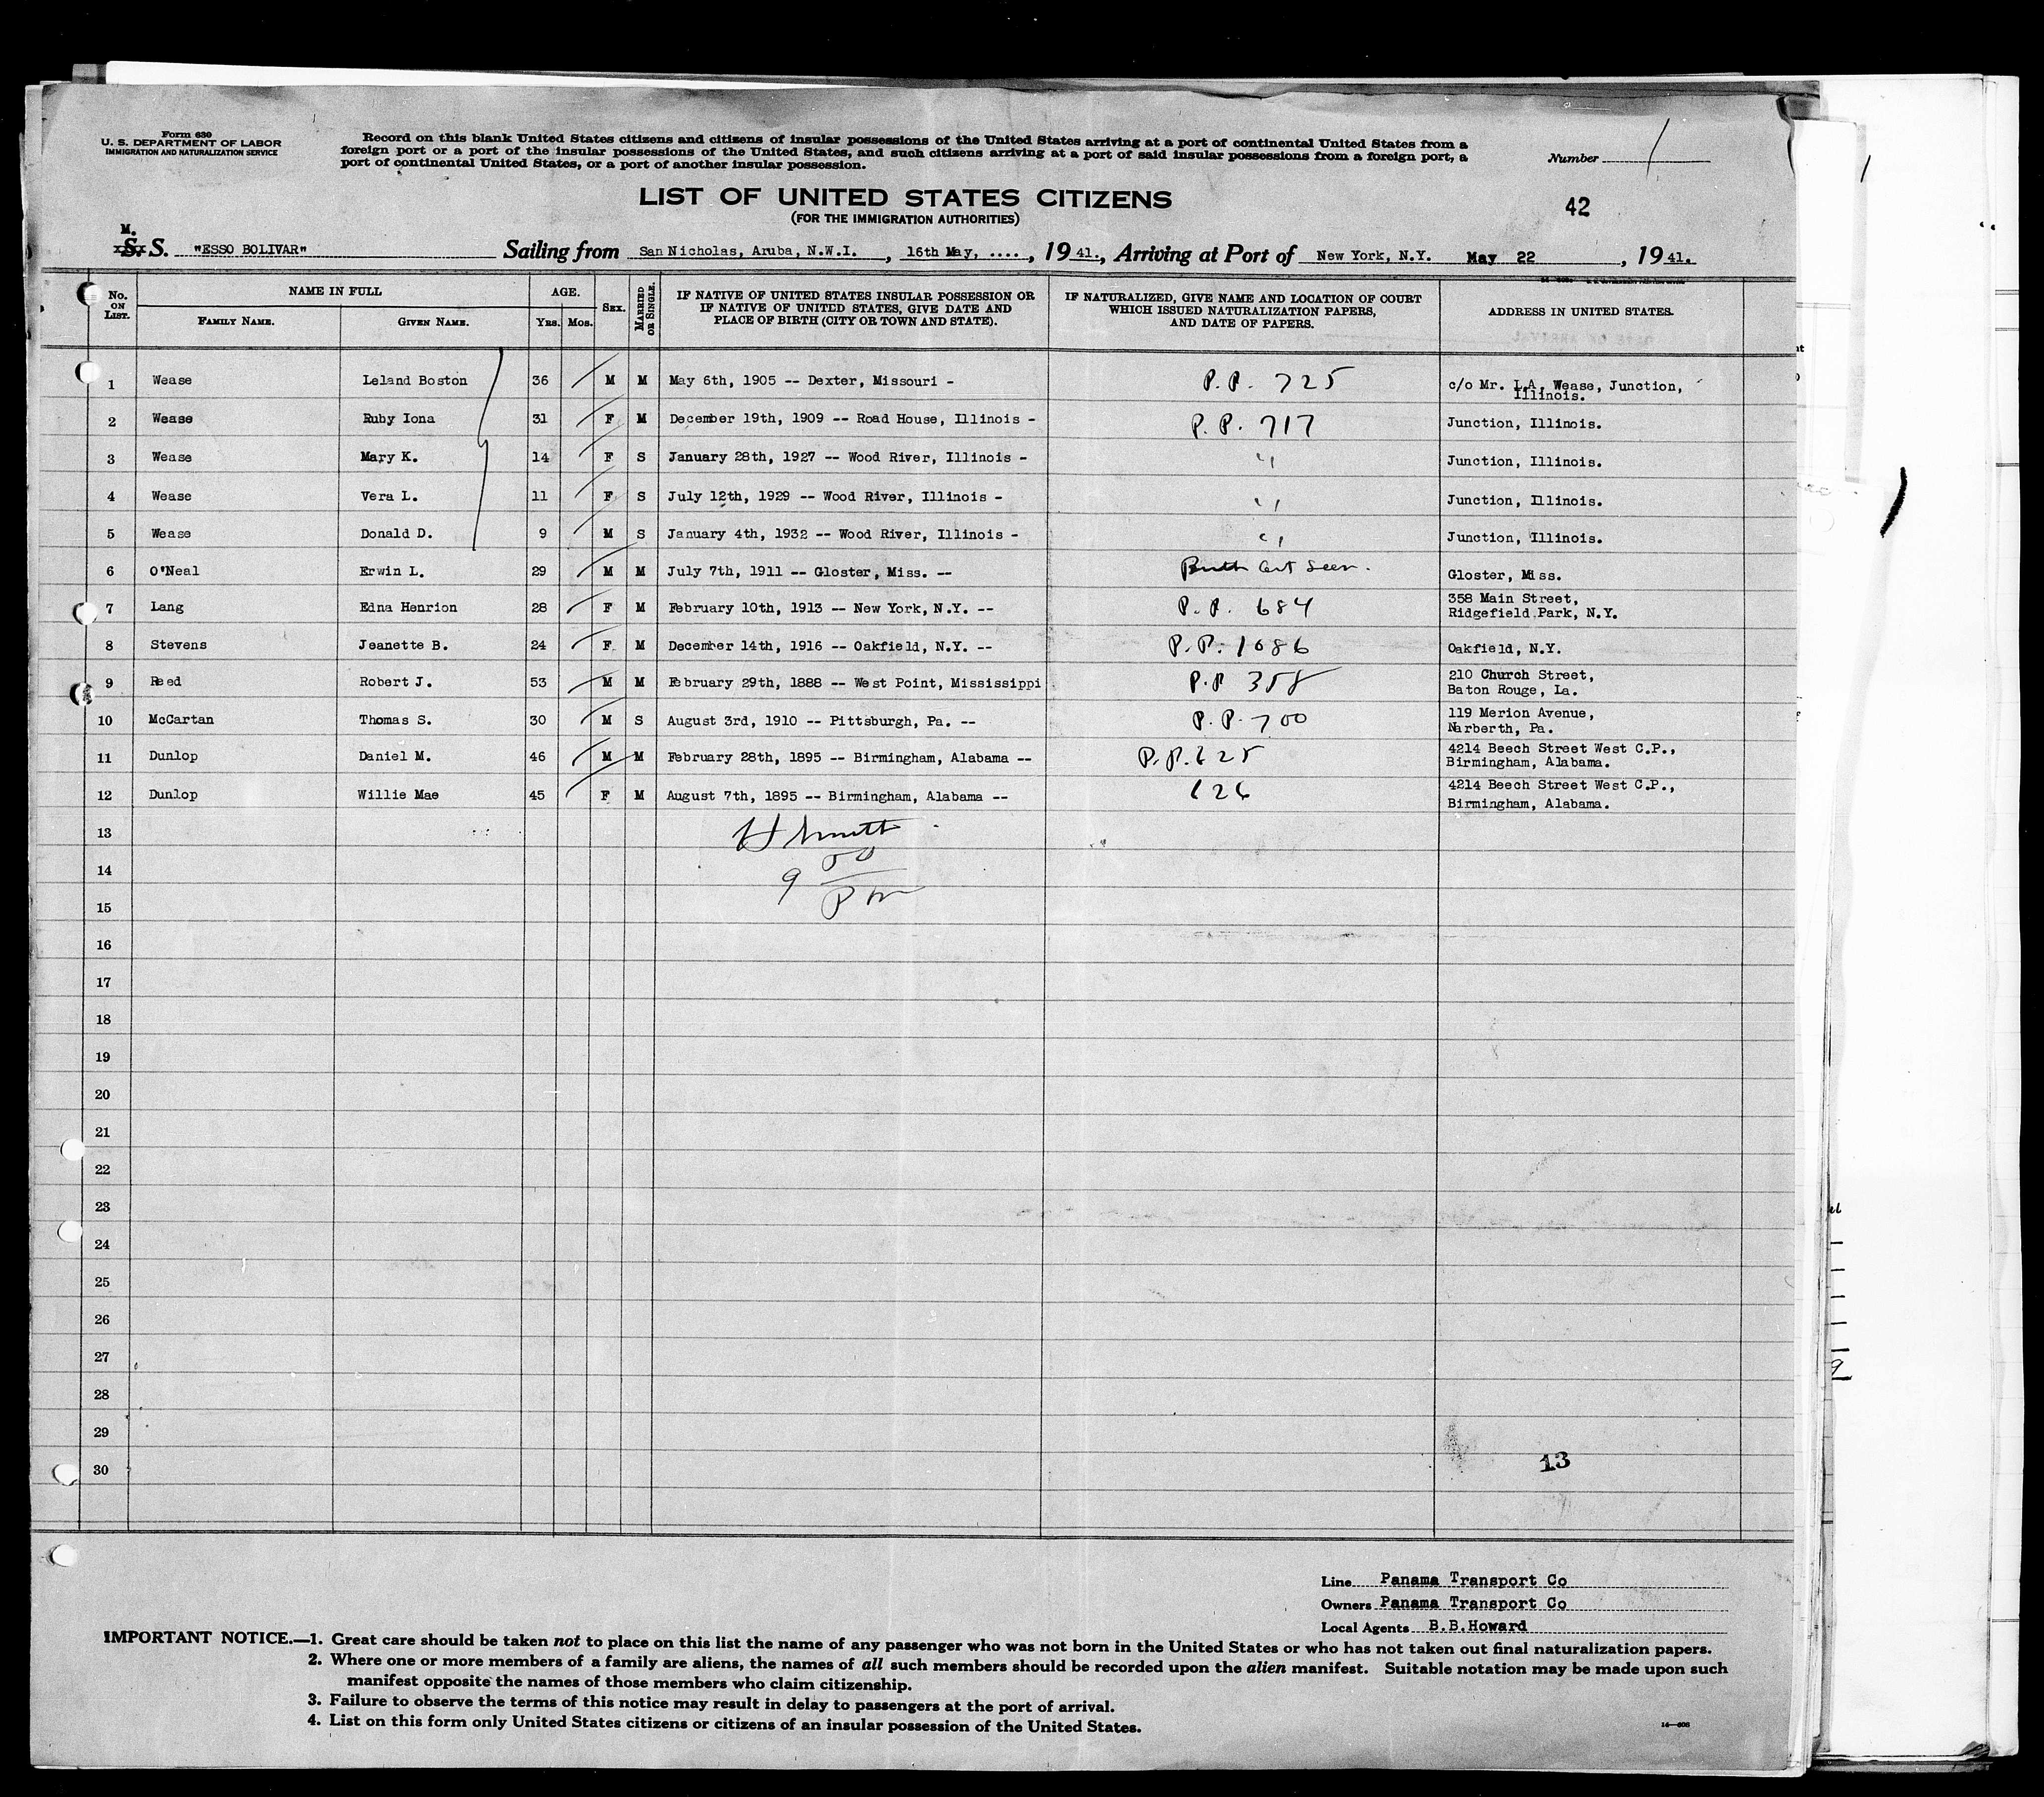 Form 630
U. S. DEPARTMENT OF LABOR
IMMIGRATION AND NATURALIZATION SERVICE
Record on this blank United States citizens and citizens of insular possessions of the United States arriving at a port of continental United States from a
foreign port or a port of the insular possessions of the United States, and such citizens arriving at a port of said insular possessions from a foreign port, a
port of continental United States, or a port of another insular possession.
Number 1
LIST OF UNITED STATES CITIZENS
(FOR THE IMMIGRATION AUTHORITIES)
42
M.
S. S. "ESSO BOLIVAR" Sailing from San Nicholas, Aruba, N.W.I., 16th May, ...., 1941., Arriving at Port of New York, N.Y. May 22, 1941.
No. ON LIST. NAME IN FULL FAMILY NAME. GIVEN NAME. AGE. YRS. MOS. SEX. MARRIED OR SINGLE. IF NATIVE OF UNITED STATES INSULAR POSSESSION OR IF NATIVE OF UNITED STATES, GIVE DATE AND PLACE OF BIRTH (CITY OR TOWN AND STATE). IF NATURALIZED, GIVE NAME AND LOCATION OF COURT WHICH ISSUED NATURALIZATION PAPERS, AND DATE OF PAPERS. ADDRESS IN UNITED STATES.
1 Wease Leland Boston 36 M M May 6th, 1905 -- Dexter, Missouri - P.P. 725 c/o Mr. L.A. Wease, Junction, Illinois.
2 Wease Ruby Iona 31 F M December 19th, 1909 -- Road House, Illinois - P.P. 717 Junction, Illinois.
3 Wease Mary K. 14 F S January 28th, 1927 -- Wood River, Illinois - " Junction, Illinois.
4 Wease Vera L. 11 F S July 12th, 1929 -- Wood River, Illinois - " Junction, Illinois.
5 Wease Donald D. 9 M S January 4th, 1932 -- Wood River, Illinois - " Junction, Illinois.
6 O'Neal Erwin L. 29 M M July 7th, 1911 -- Gloster, Miss. -- Birth Cert Seen. Gloster, Miss.
7 Lang Edna Henrion 28 F M February 10th, 1913 -- New York, N.Y. -- P.P. 684 358 Main Street, Ridgefield Park, N.Y.
8 Stevens Jeanette B. 24 F M December 14th, 1916 -- Oakfield, N.Y. -- P.P. 1086 Oakfield, N.Y.
9 Reed Robert J. 53 M M February 29th, 1888 -- West Point, Mississippi P.P 358 210 Church Street, Baton Rouge, La.
10 McCartan Thomas S. 30 M S August 3rd, 1910 -- Pittsburgh, Pa. -- P.P. 700 119 Merion Avenue, Narberth, Pa.
11 Dunlop Daniel M. 46 M M February 28th, 1895 -- Birmingham, Alabama -- P.P. 625 4214 Beech Street West C.P., Birmingham, Alabama.
12 Dunlop Willie Mae 45 F M August 7th, 1895 -- Birmingham, Alabama -- 626 4214 Beech Street West C.P., Birmingham, Alabama.
13 H Smith
14 9 00
15 Pm
16
17
18
19
20
21
22
23
24
25
26
27
28
29
30 13
Line Panama Transport Co
Owners Panama Transport Co
Local Agents B.B.Howard
IMPORTANT NOTICE.—1. Great care should be taken not to place on this list the name of any passenger who was not born in the United States or who has not taken out final naturalization papers.
2. Where one or more members of a family are aliens, the names of all such members should be recorded upon the alien manifest. Suitable notation may be made upon such
manifest opposite the names of those members who claim citizenship.
3. Failure to observe the terms of this notice may result in delay to passengers at the port of arrival.
4. List on this form only United States citizens or citizens of an insular possession of the United States.